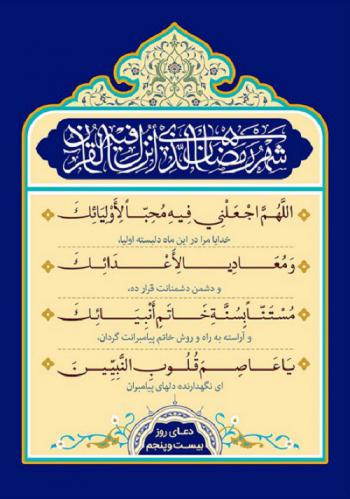 شهر رمضان الذي أنزل فيه القرآن
اللَّهُمَّ اجْعَلْنِي فِيهِ مُحِبّاً لِأَوْلِيَائِكَ
خدایا مرا در این ماه دلبسته اولیا،
وَ مُعَادِياً لِأَعْدَائِكَ
و دشمن دشمنانت قرار ده،
مُسْتَنّاً بِسُنَّةِ خَاتَمِ أَنْبِيَائِكَ
و آراسته به راه و روش خاتم پیامبرانت گردان،
يَا عَاصِمَ قُلُوبِ النَّبِيِّينَ
ای نگهدارنده دلهای پیامبران
دعای روز
بیست و پنجم